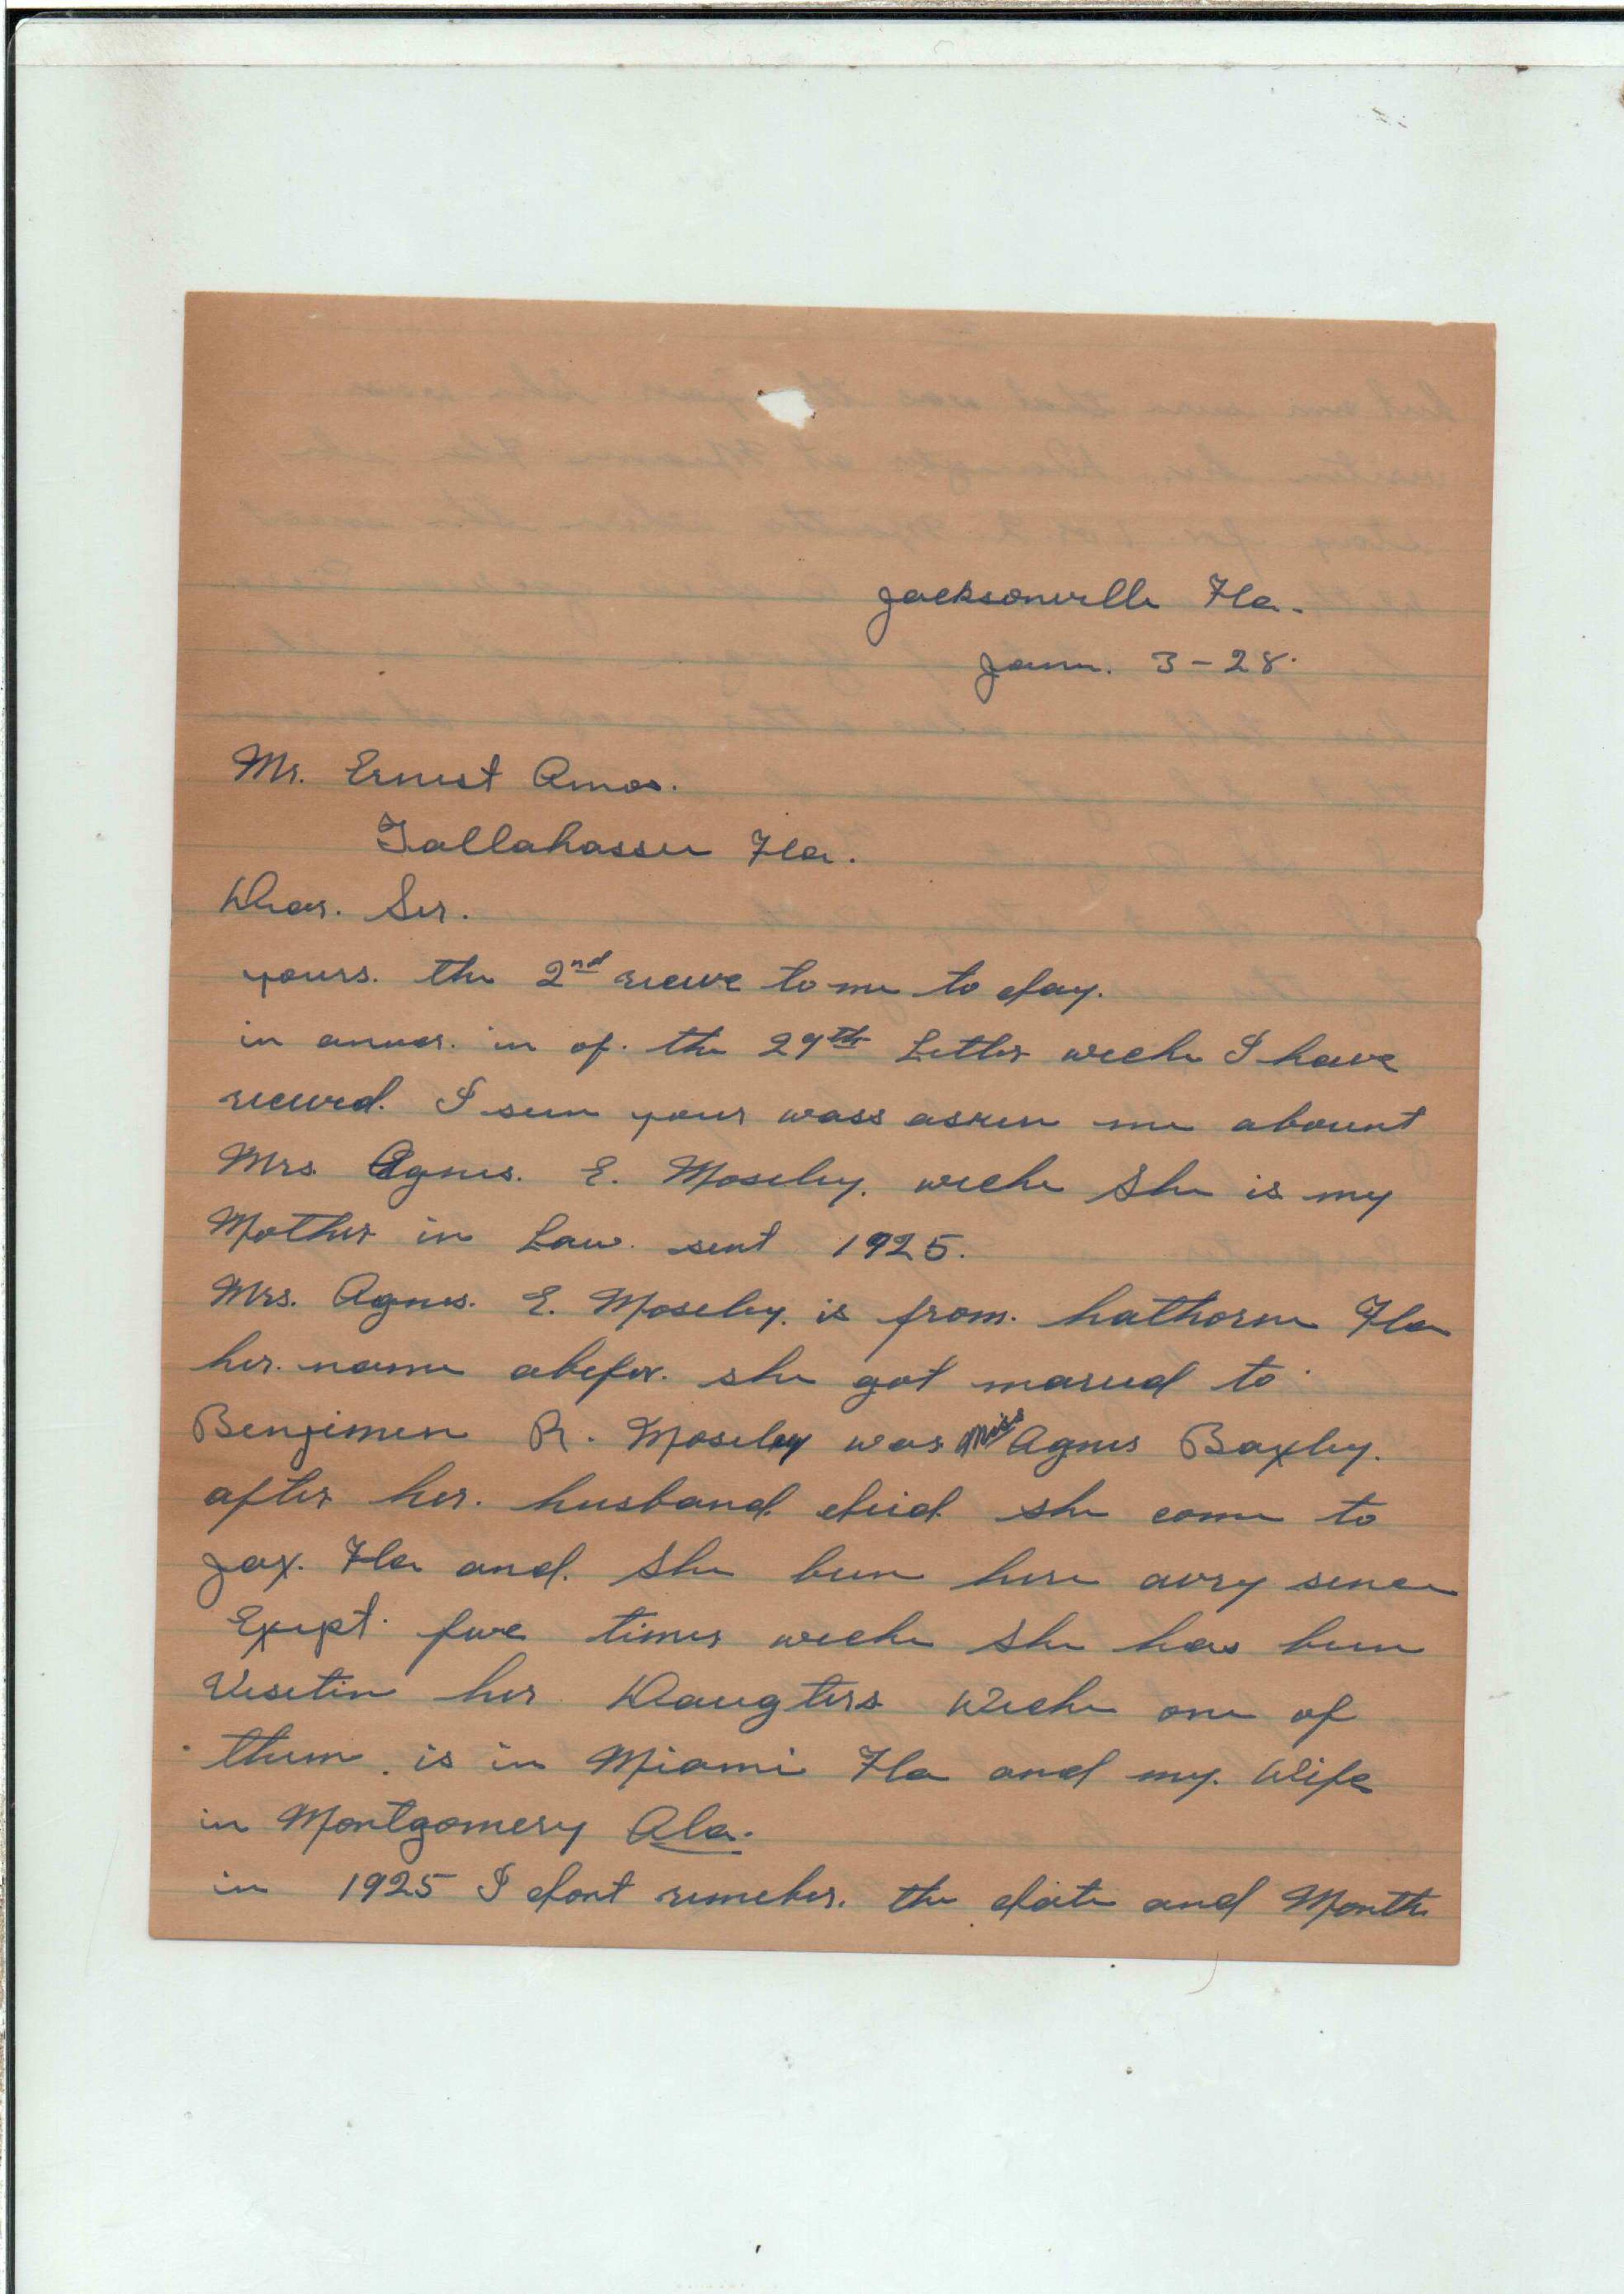 Jacksonville Fla.
Jann. 3-28.
Mr. Ernest Amos.
Tallahassee Fla.
Dear. Ser.
yours. the 2nd receve to me to day.
in anwer. in of. the 29th Letter weche I have
receved. I seen your wass asken me abount
Mrs. Agnes. E. Moseley. weche She is my
Mother in Law. sent 1925.
Mrs. Agnes. E. Moseley. is from. hathorne Fla
her. name abefor. she got maried to
Benjimen R. Moseley was Miss Agnes Baxley.
after her. husband. deid. she come to
Jax. Fla and. She been here avry sence
Exept. fwe times weche She has been
Visetin her Daugters Weche one of
them. is in Miami Fla and my. Wife
in Montgomery Ala.
in 1925 I dont remeber. the date and Month